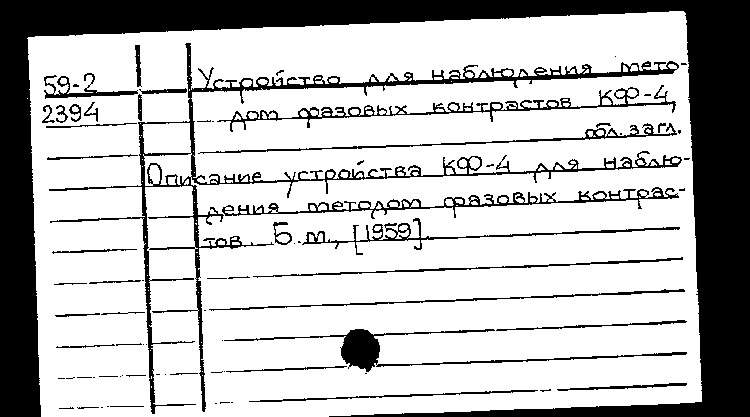 59-2 Устройство для наблюдения мето-
2394 дом фазовых контрастов КФ-4,
обл. загл.
Описание устройства КФ-4 для наблю-
дения методом фазовых контрас-
тов. Б.м., [1959].